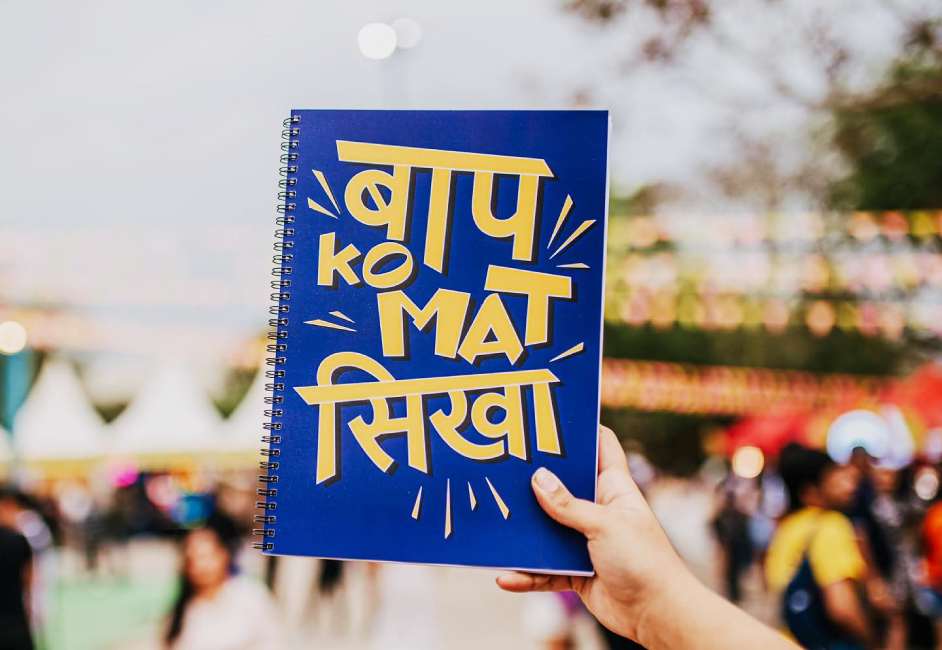 बाप
KO
MAT
सिखा